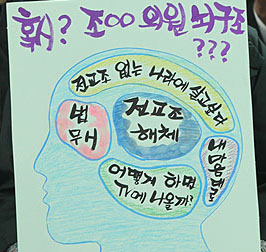 휙? 조○○ 의원 뇌구조
???
전교조 없는 나라에 살고싶다
법
무시
전교조
해체
내맘대로
어떻게 하면
TV에 나올까?